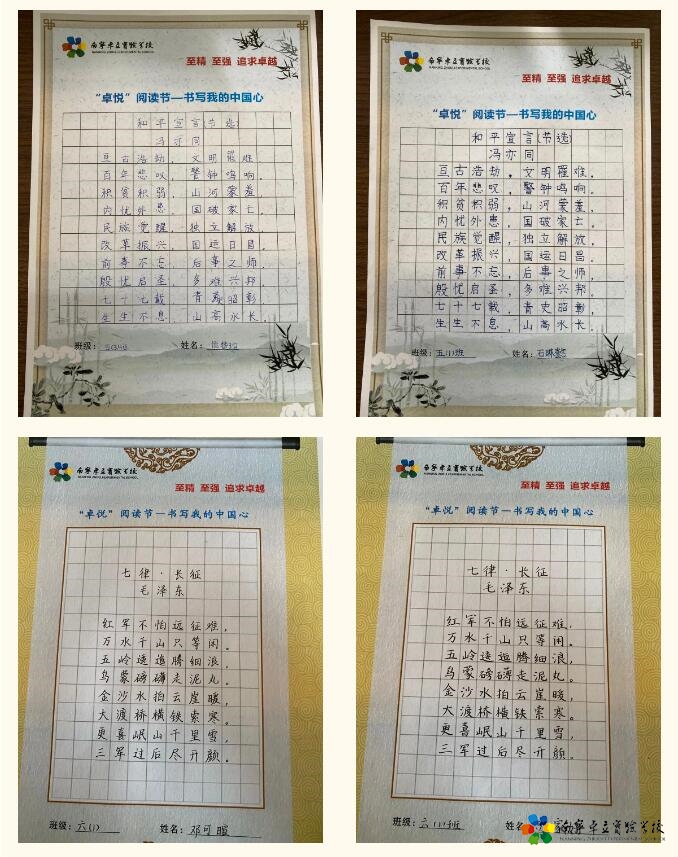 南宁卓立实验学校
NANNING ZHUOLI EXPERIMENTAL SCHOOL
至精 至强 追求卓越
“卓悦”阅读节—书写我的中国心
和平宣言(节选)
冯亦同
亘古浩劫，文明罹难。
百年悲叹，警钟鸣响。
积贫积弱，山河蒙羞。
内忧外患，国破家亡。
民族觉醒，独立解放。
改革振兴，国运日昌。
前事不忘，后事之师。
殷忧启圣，多难兴邦。
七十七载，青史昭彰，
生生不息，山高水长。
班级：
姓名：
南宁卓立实验学校
NANNING ZHUOLI EXPERIMENTAL SCHOOL
至精 至强 追求卓越
“卓悦”阅读节—书写我的中国心
和平宣言(节选)
冯亦同
亘古浩劫，文明罹难。
百年悲叹，警钟鸣响。
积贫积弱，山河蒙羞。
内忧外患，国破家亡。
民族觉醒，独立解放。
改革振兴，国运日昌。
前事不忘，后事之师。
殷忧启圣，多难兴邦。
七十七载，青史昭彰，
生生不息，山高水长。
班级：五(1)班 姓名：石琳
南宁卓立实验学校
至精 至强 追求卓越
“卓悦”阅读节—书写我的中国心
七律·长征
毛泽东
红军不怕远征难，
万水千山只等闲。
五岭逶迤腾细浪，
乌蒙磅礴走泥丸。
金沙水拍云崖暖，
大渡桥横铁索寒。
更喜岷山千里雪，
三军过后尽开颜。
班级：六(1) 姓名：邓可暄
南宁卓立实验学校
至精 至强 追求卓越
“卓悦”阅读节—书写我的中国心
七律·长征
毛泽东
红军不怕远征难，
万水千山只等闲。
五岭逶迤腾细浪，
乌蒙磅礴走泥丸。
金沙水拍云崖暖，
大渡桥横铁索寒。
更喜岷山千里雪，
三军过后尽开颜。
班级：六(1)班 姓名：
南宁卓立实验学校